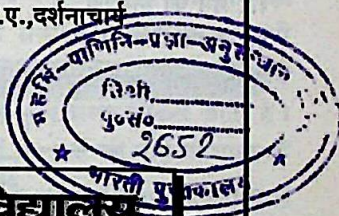 .ए.,दर्शनाचार्य
महर्षि-पाणिनि-प्रज्ञा-अनुसन्धान
तिथी..............
पु०सं०..............
2652
भारती पुस्तकालय
विद्यालय